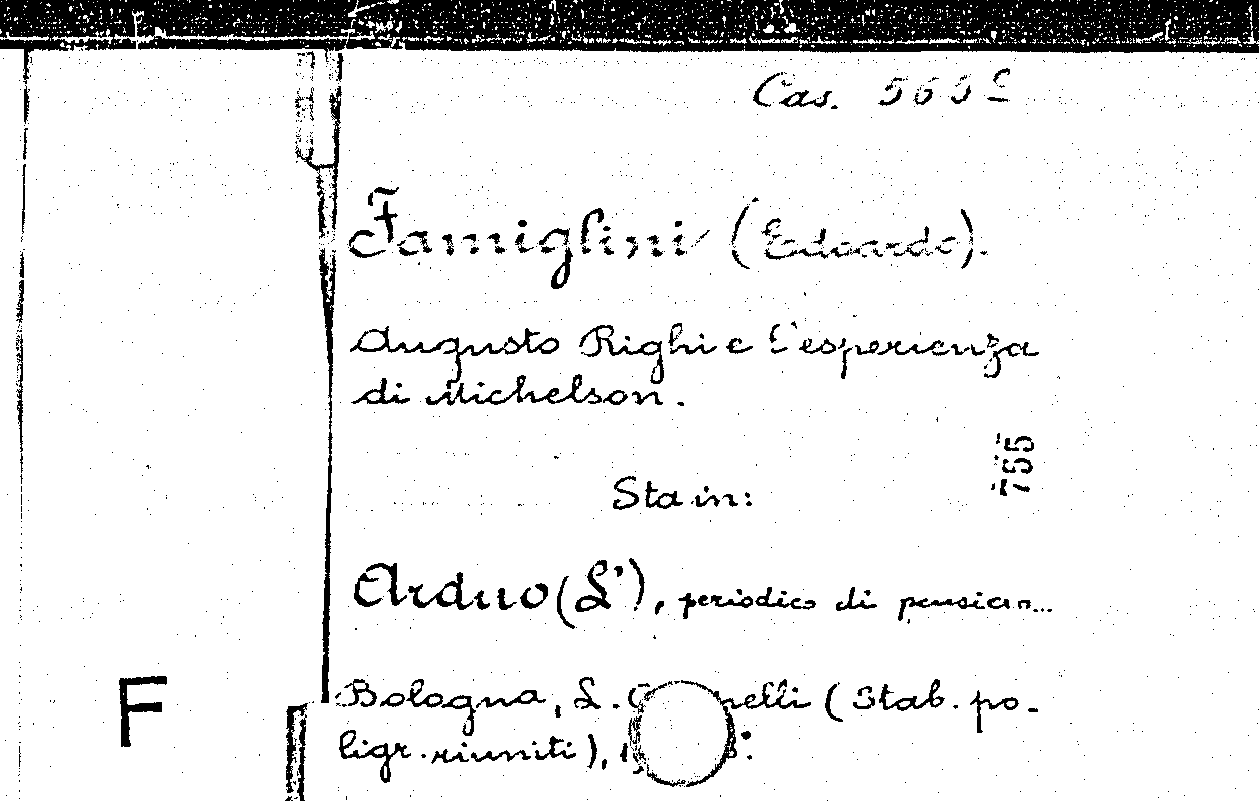 Cas. 565
Famiglini (Edoardo).
Augusto Righi e l'esperienza
di Michelson.
755
Sta in:
Arduo (L'), periodico di
F
Bologna, L. (Stab. po-
ligr. riuniti),